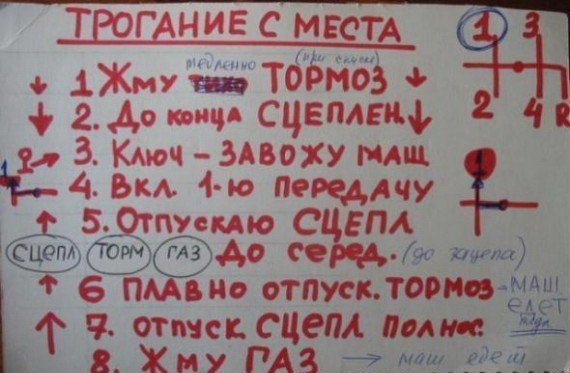 ТРОГАНИЕ С МЕСТА
1 3
2 4 R
медленно (при спуске)
1 Жму ТОРМОЗ
2. До конца СЦЕПЛЕН.
3. Ключ - ЗАВОЖУ МАШ
1
4. Вкл. 1-ю ПЕРЕДАЧУ
1
5. ОТПУСКАЮ СЦЕПЛ
СЦЕПЛ ТОРМ ГАЗ ДО серед. (до зацепа)
6 ПЛАВНО отпуск. ТОРМОЗ - МАШ
едет
7. отпуск СЦЕПЛ полнос.
8. Жму ГАЗ → маш едет